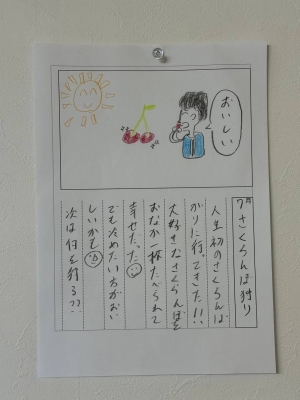 おいしい
7月 さくらんぼ狩り
人生初のさくらんぼ
がりに行ってきた!!
大好きなさくらんぼを
おなか一杯たべられて
幸せだった
でも冷めたい方がおい
しいかも
次は何を狩る??